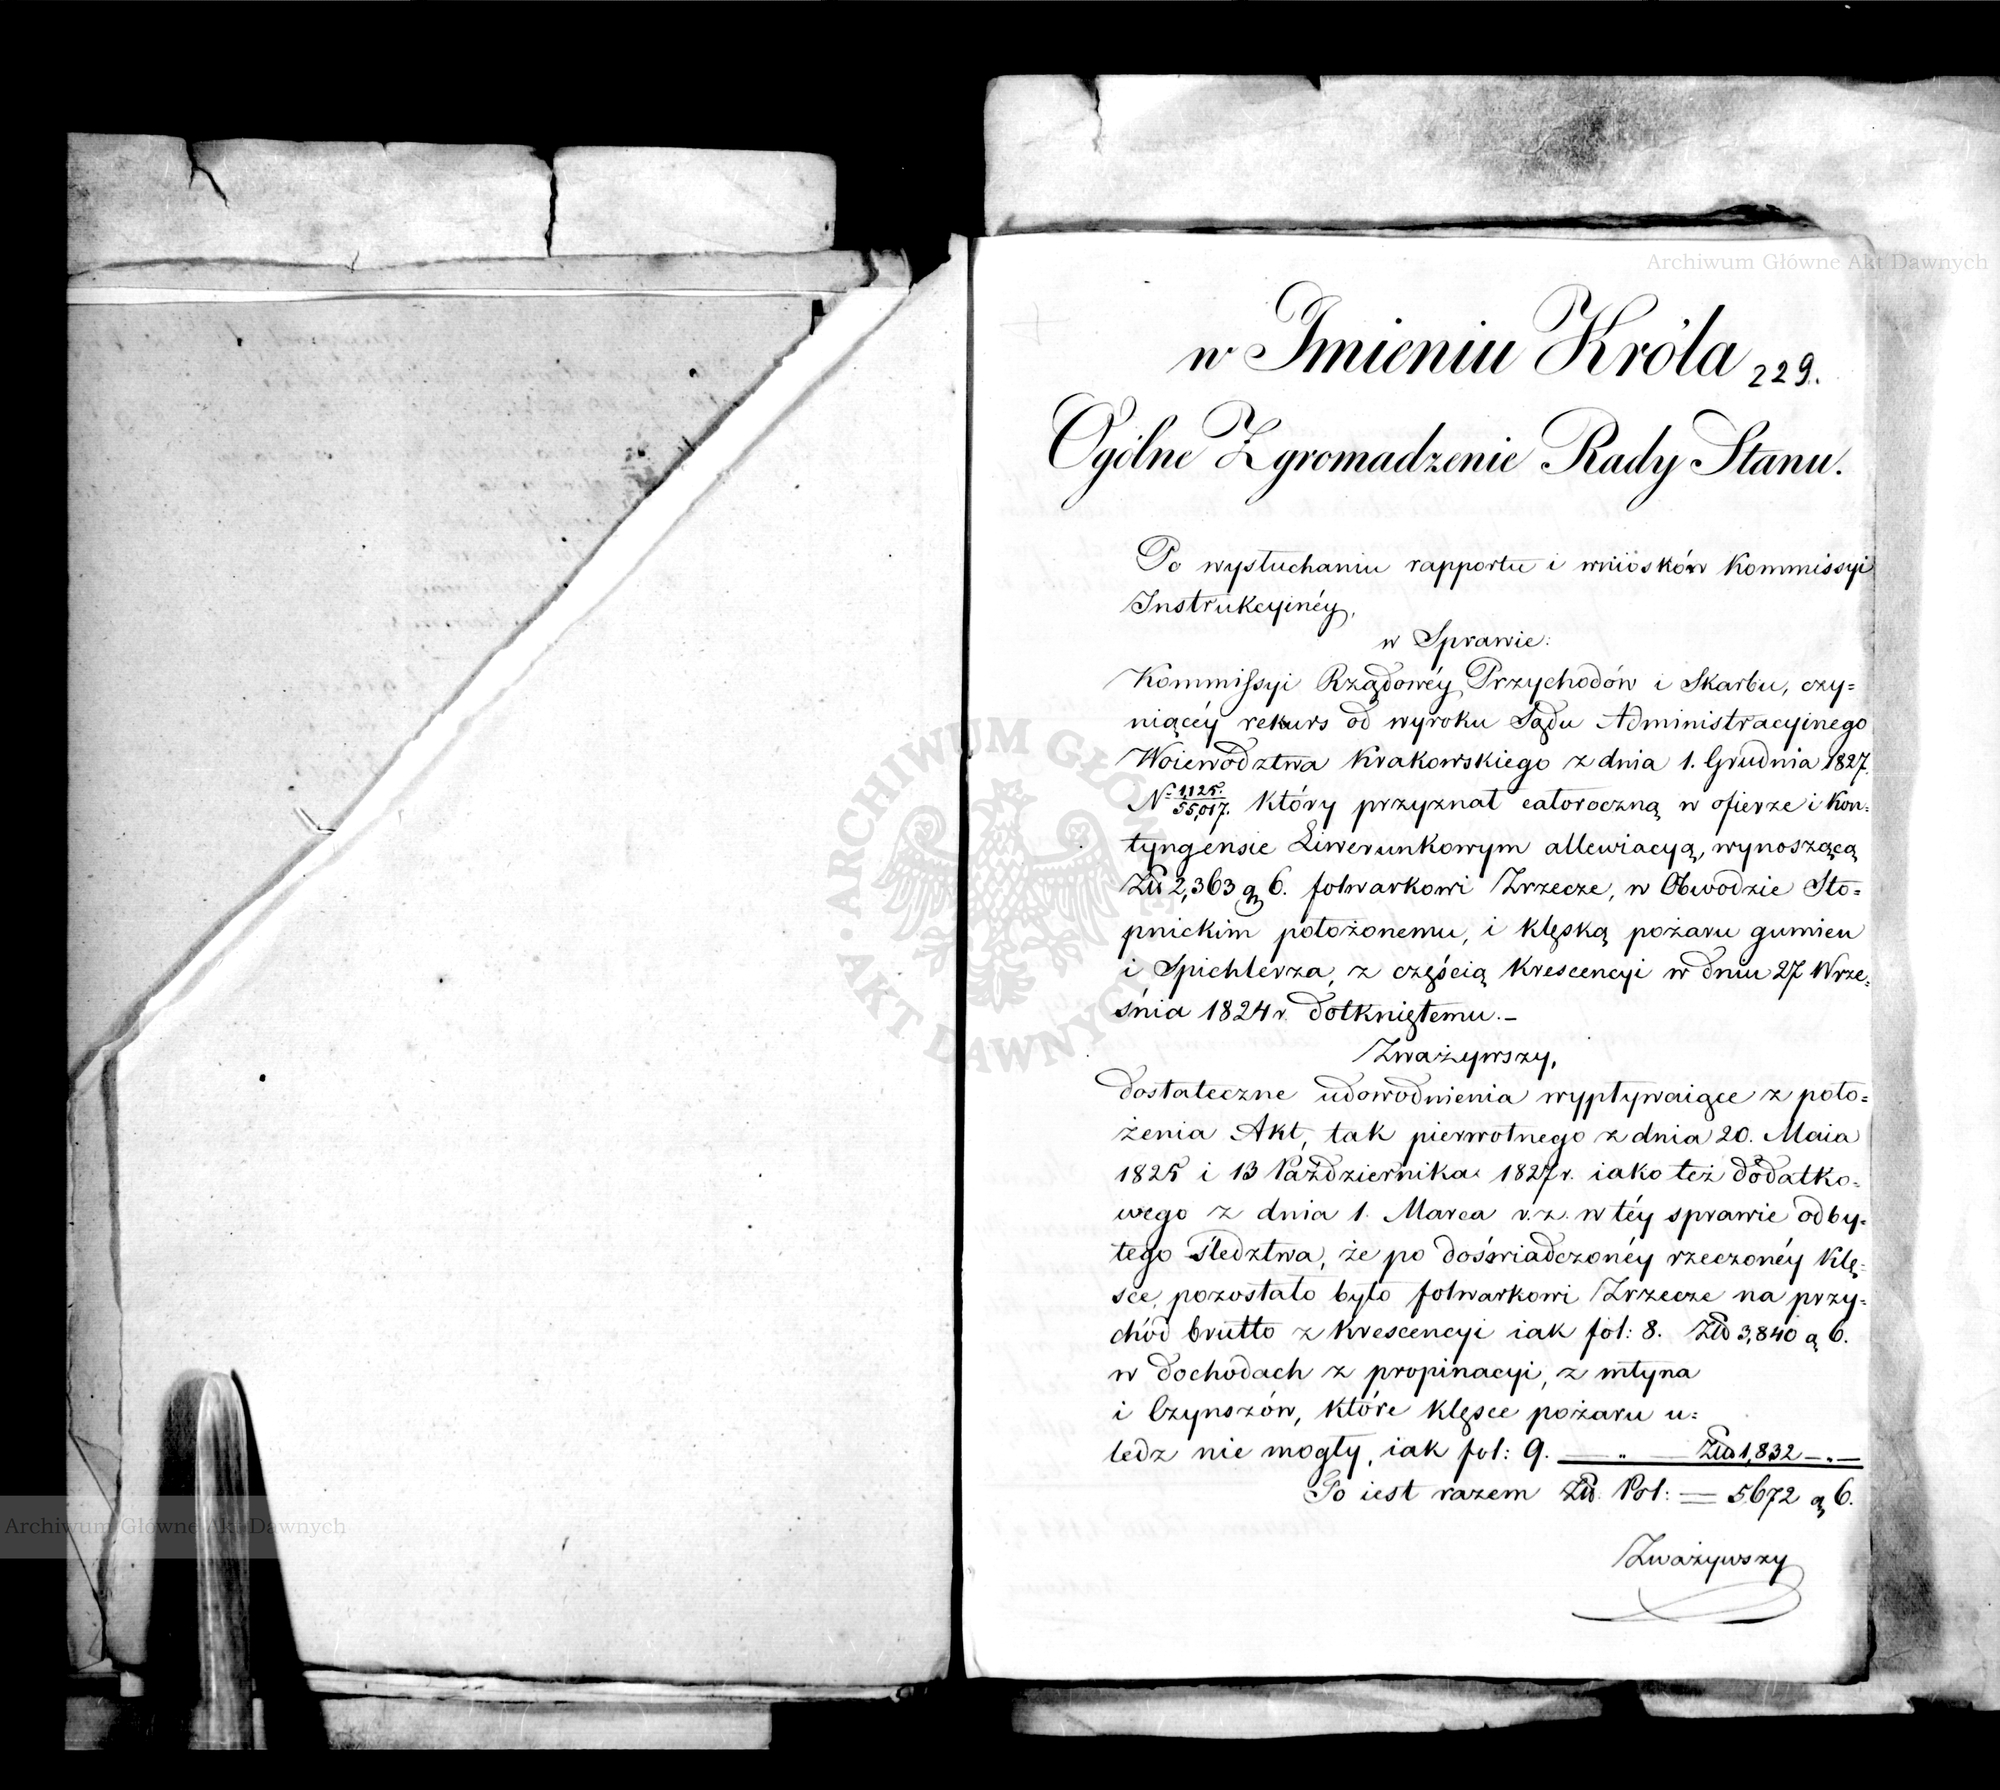 w Imieniu Króla
229.
Ogólne Zgromadzenie Rady Stanu.
Po wysłuchaniu rapportu i wniosków Kommissyi
Instrukcyinéy,
w Sprawie:
Kommissyi Rządowéy Przychodów i Skarbu, czy=
niącéy rekurs od wyroku Sądu Administracyinego
Woiewodztwa Krakowskiego z dnia 1. Grudnia 1827.
N 1125./55,017. który przyznał całoroczną w ofierze i Kon=
tyngensie Liwerunkowym allewiacyą, wynoszącą
Złł 2,363 g 6. folwarkowi Zrzecze, w Obwodzie Sto=
pnickim położonemu, i klęską pożaru gumien
i Spichlerza, z częścią Krescencyi w dniu 27 Wrze=
śnia 1824 r. dotkniętemu.–
Zważywszy,
dostateczne udowodnienia wypływaiące z poło=
żenia Akt, tak pierwotnego z dnia 20. Maia
1825 i 13 Października 1827 r. iako też dodatko=
wego z dnia 1. Marca r. z. w téy sprawie odby=
tego śledztwa, że po doświadczonéy rzeczonéy klę=
sce, pozostało było folwarkowi Zrzecze na przy=
chód brutto z Krescencyi iak fol: 8. Złł 3,840 g 6.
w dochodach z propinacyi, z młyna
i Czynszów, które klęsce pożaru u=
ledz nie mogły, iak fol: 9. — „ — Złł 1,832 –„–
To iest razem Złł. Pol: = 5672 g 6.
Zważywszy
Archiwum Główne Akt Dawnych
ARCHIWUM GŁÓWNE · AKT DAWNYCH ·
Archiwum Główne Akt Dawnych